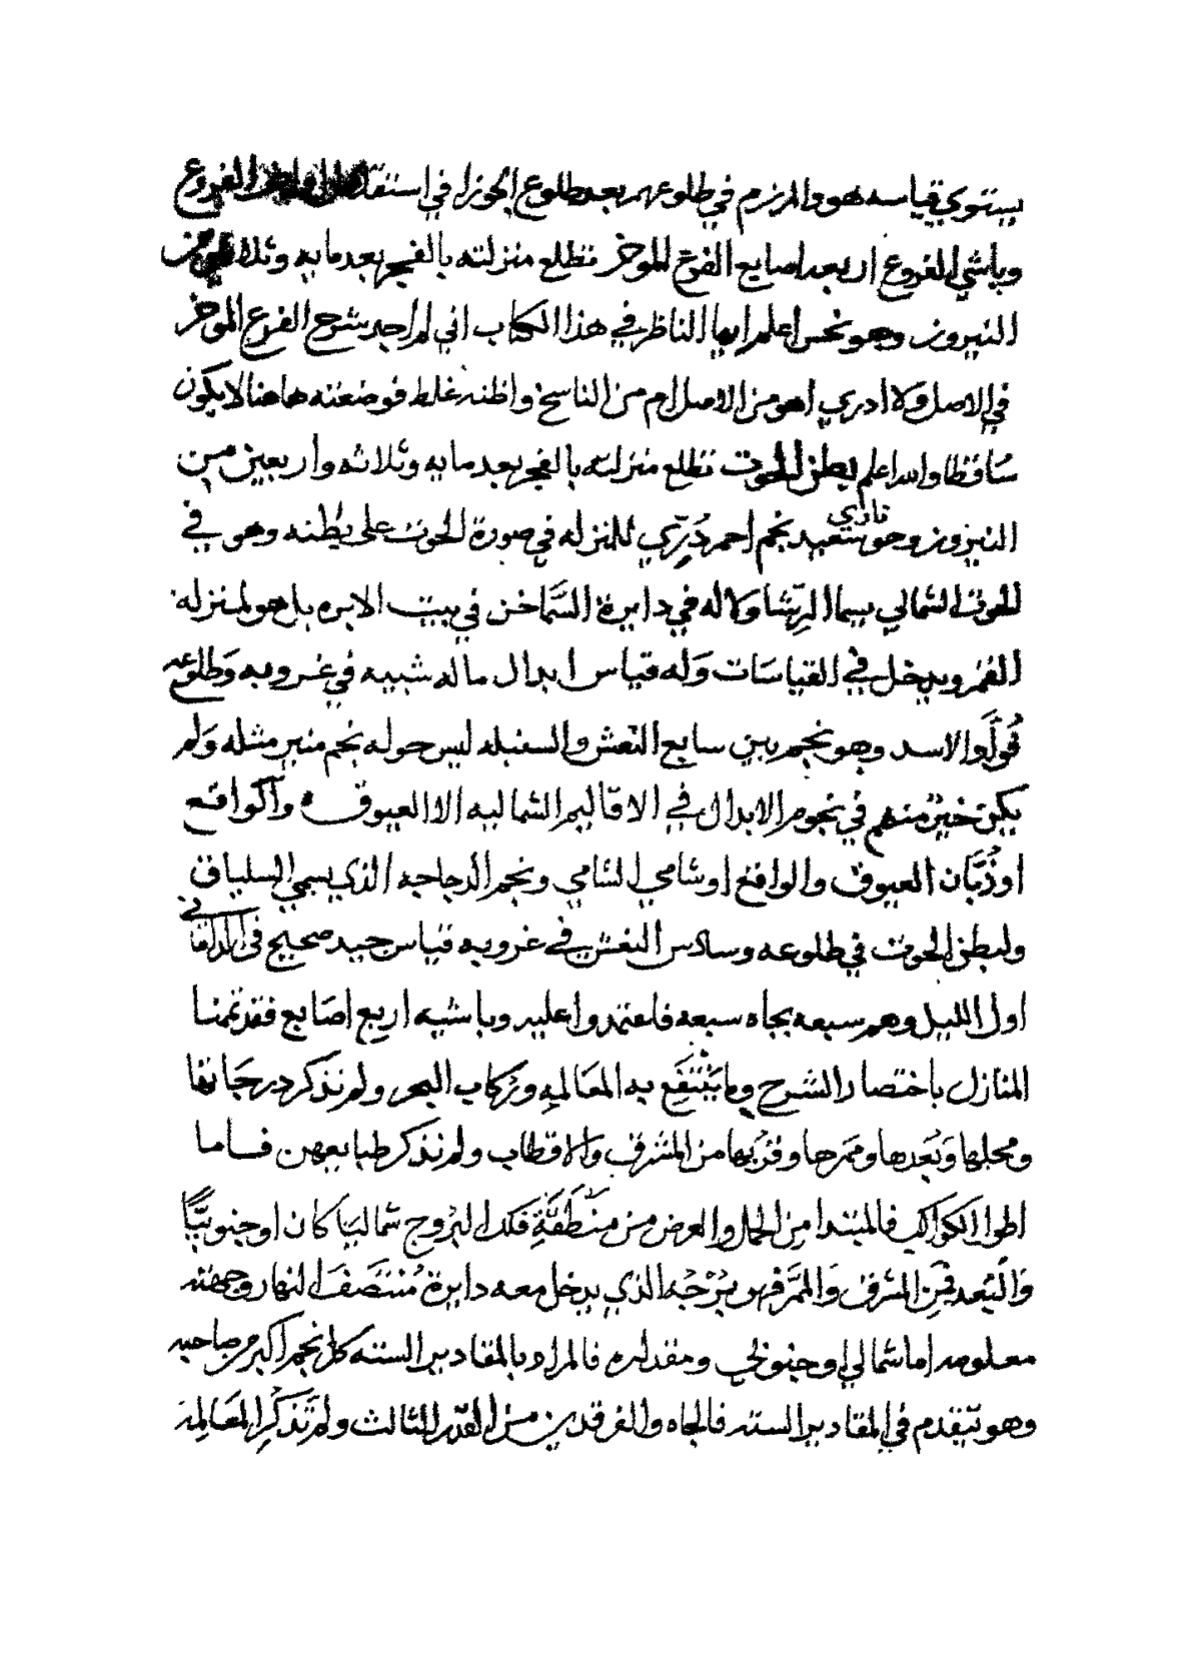 يستوي قياسه هو والمرزم في طلوعهم بعد طلوع الجوزا في استقلال الفروع
وباشي الفروع اربعه اصابع الفرع الموخر تطلع منزلته بالفجر بعد مايه وثلاثين من
النيروز وهو نحس اعلم ايها الناظر في هذا الكتاب اني لم اجد شرح الفرع الموخر
في الاصل ولا ادري اهو من الاصل ام من الناسخ واظنه غلط فوضعته هاهنا لا يكون
ساقطا والله اعلم بطن الحوت تطلع منزلته بالفجر بعد مايه وثلاثه واربعين من
النيروز وهو سعيد ناري نجم احمر دُرِّي للمنزله في صورة الحوت على بطنه وهو في
الحوت الشمالي يسما الرِّشا ولا له في دايرة السَّما خن في بيت الابره بل هو لمنزله
القمر ويدخل في القياسَات وَله قياس ابدال ماله شبيه في غروبه وَطلوعه
قُولُوا الاسد وهو نجم بين سابع النعش والسنبله ليس حوله نجم منير مثله وَلم
يكن خيرٌ منهم في نجوم الابدال في الاقاليم الشماليه الا العيوق والواقع
اوذُبَّان العيوق والواقع اوشامي الشامي ونجم الدجاجه الذي يسمي السلياق
ولبطن الحوت في طلوعه وسادس النعش في غروبه قياس جيد صحيح في الدامَاني في
اول الليل وهم سبعه بجاه سبعه فاعتمدوا عليه وباشيه اربع اصَابع فقد تمت
المنازل باختصار الشرح وما يَنْتَفِع به المعَالمه وركاب البحر ولم نذكر درجَاتها
ومحلها وَبُعدها وممرها وقربها من المشرق والاقطاب ولم نذكر طبايعهن فاما
اطوال الكواكب فالمبتدا من الحمل والعرض من مِنْطَقَّةِ فلك البرُوج شماليًا كان او جنوبيًّا
وَالبُعد فمِن المشرق وَالممَّر فهو بُرْجُه الذي يدخل معه دايرة مُنْتَصَفَ النهار وجهته
معلومه اما شمالي او جنوبي ومقداره فالمراد بالمقادير السته كل نجم اكبر من صاحبه
وهو يتقدم في المقادير السته فالجاه والفرقدين من القدر الثالث ولم نَذكُرِ المعَالِمه